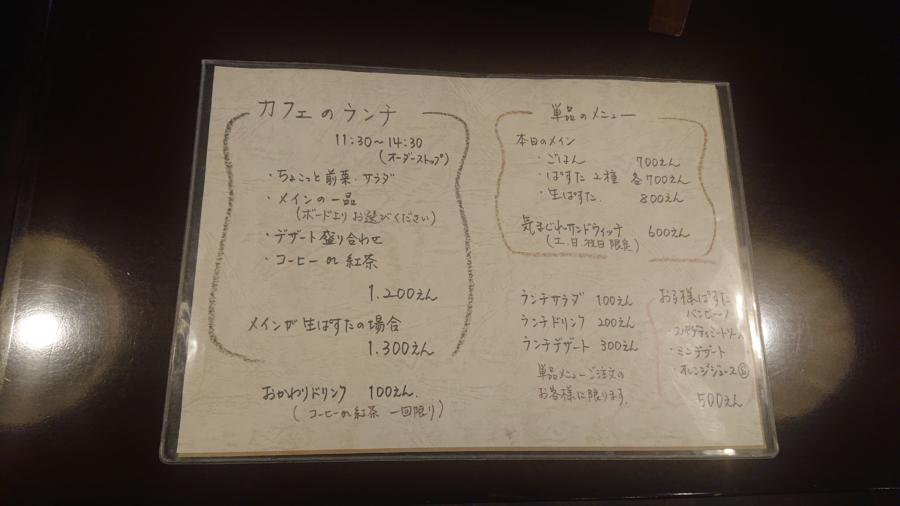 カフェのランチ
11:30～14:30
(オーダーストップ)
・ちょこっと前菜.サラダ
・メインの一品
(ボードより お選びください)
・デザート盛り合わせ
・コーヒー or 紅茶
1.200えん
メインが生ぱすたの場合
1.300えん
おかわりドリンク 100えん.
(コーヒー or 紅茶 一回限り)
単品のメニュー
本日のメイン
・ごはん 700えん
・ぱすた 2種 各700えん
・生ぱすた. 800えん
気まぐれサンドウィッチ 600えん
(土.日.祝日限定)
ランチサラダ 100えん
ランチドリンク 200えん
ランチデザート 300えん
単品メニューご注文の
お客様に限ります.
お子様ぱすた
バンビーノ
スパゲティミートソース
・ミニデザート
・オレンジジュース
500えん